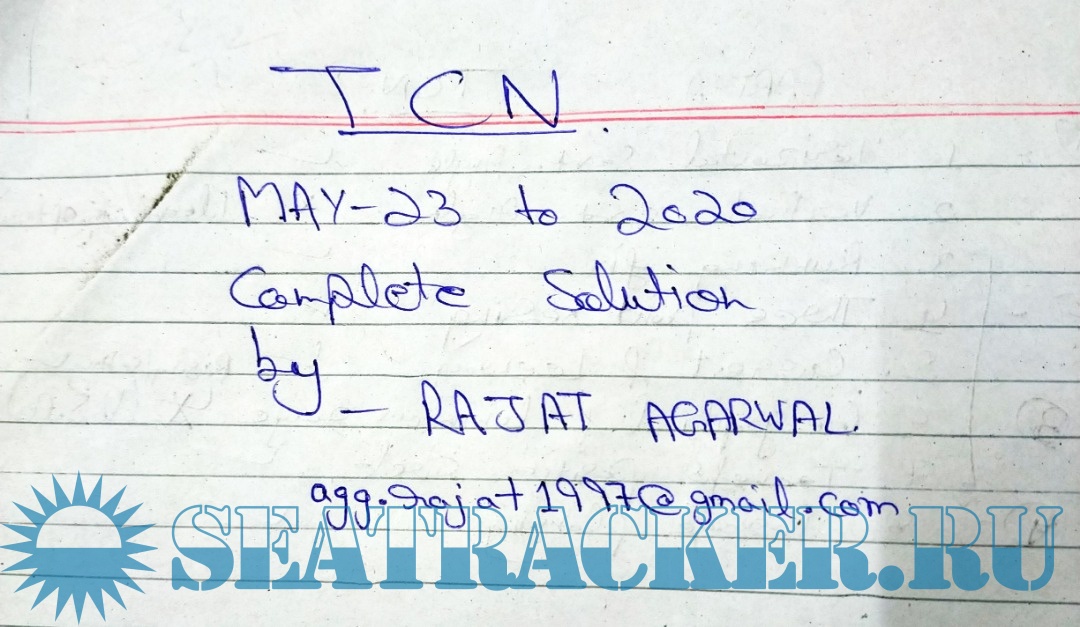 TCN.
MAY-23 to 2020
Complete Solution
by
- RAJAT AGARWAL.
agg.rajat1997@gmail.com
SEATRACKER.RU